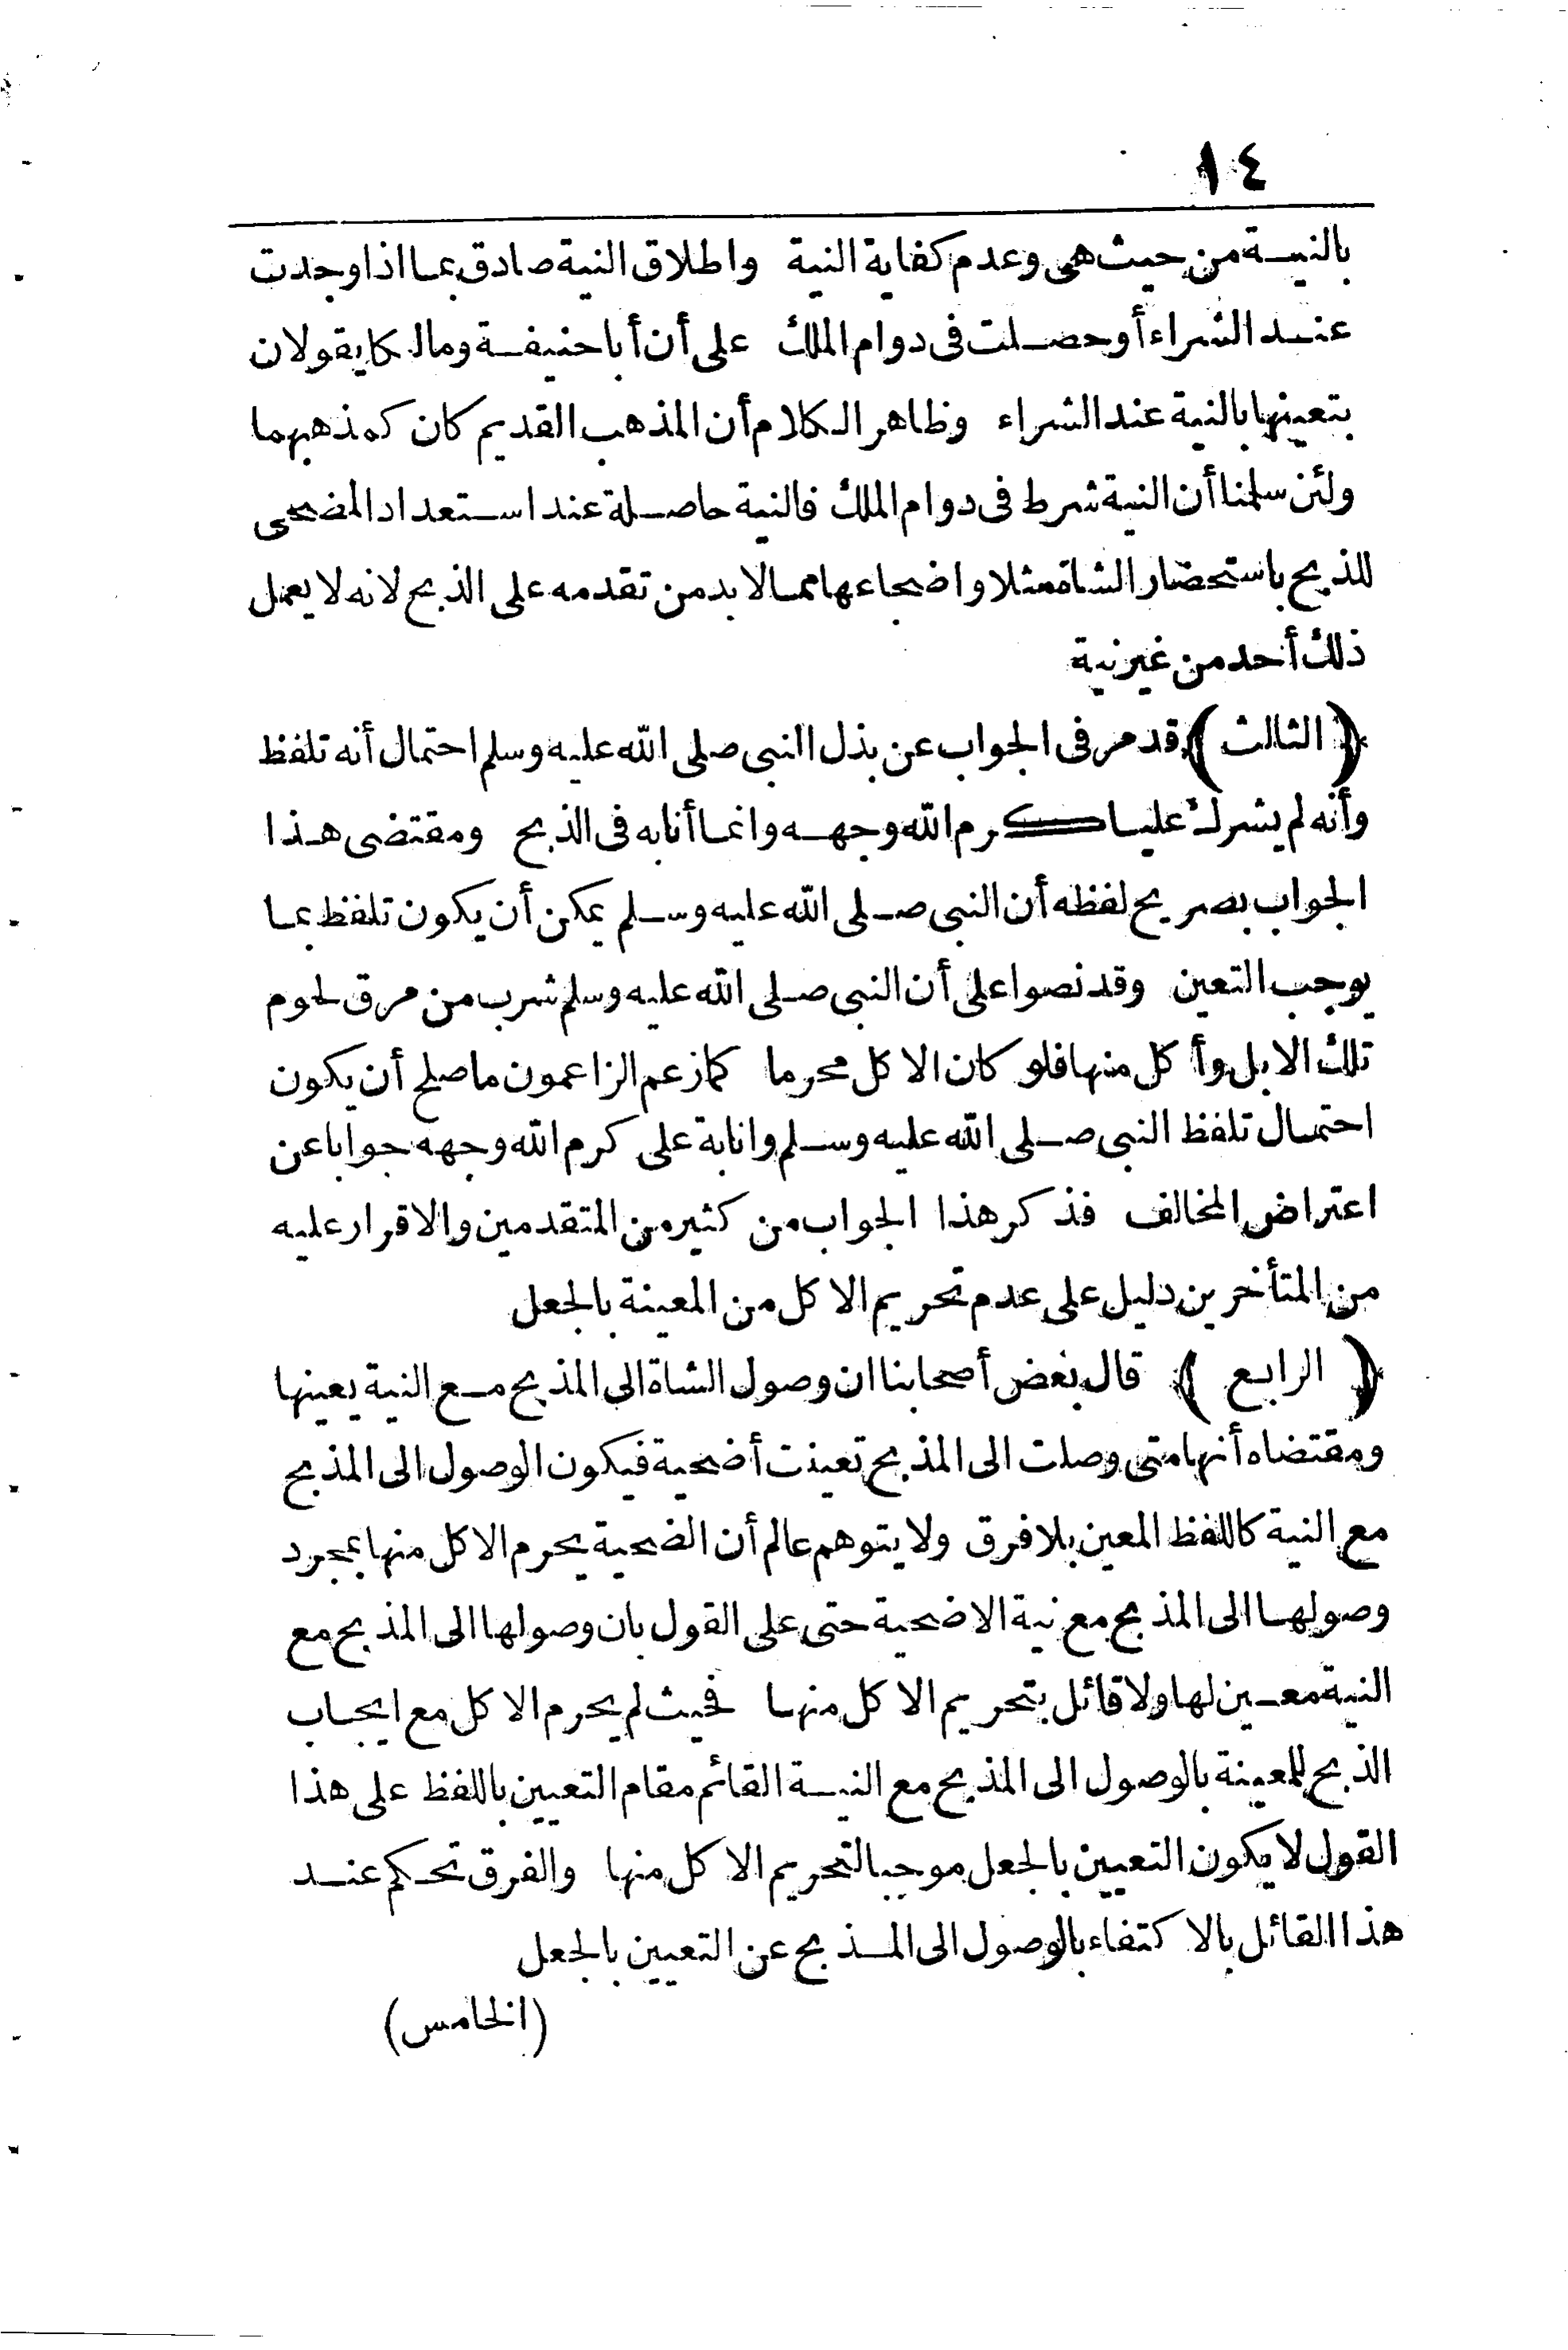 ١٤
بالنيـة من حيث هى وعدم كفاية النية واطلاق النية صادق بما اذا وجدت
عند الشراء أو حصلت فى دوام الملك على أن أبا حنيفة ومالكا يقولان
بتعينها بالنية عند الشراء وظاهر الكلام أن المذهب القديم كان كمذهبهما
ولئن سلمنا أن النية شرط فى دوام الملك فالنية حاصلة عند استعداد المضحى
للذبح باستحضار الشاة مثلا واضجاعها مما لا بد من تقدمه على الذبح لانه لا يعمل
ذلك أحد من غير نية
﴿الثالث﴾ قد مر فى الجواب عن بذل النبى صلى الله عليه وسلم احتمال أنه تلفظ
وأنه لم يشرك عليا كرم الله وجهه وانما أنابه فى الذبح ومقتضى هذا
الجواب بصريح لفظه أن النبى صلى الله عليه وسلم يمكن أن يكون تلفظ بما
يوجب التعين وقد نصوا على أن النبى صلى الله عليه وسلم شرب من مرق لحوم
تلك الابل وأكل منها فلو كان الاكل محرما كما زعم الزاعمون ما صلح أن يكون
احتمال تلفظ النبى صلى الله عليه وسلم وانابة على كرم الله وجهه جوابا عن
اعتراض المخالف فذكر هذا الجواب من كثير من المتقدمين والاقرار عليه
من المتأخرين دليل على عدم تحريم الاكل من المعينة بالجعل
﴿الرابع﴾ قال بعض أصحابنا ان وصول الشاة الى المذبح مع النية يعينها
ومقتضاه أنها متى وصلت الى المذبح تعينت أضحية فيكون الوصول الى المذبح
مع النية كاللفظ المعين بلا فرق ولا يتوهم عالم أن الضحية يحرم الاكل منها بمجرد
وصولها الى المذبح مع نية الاضحية حتى على القول بان وصولها الى المذبح مع
النية معين لها ولا قائل بتحريم الاكل منها فحيث لم يحرم الاكل مع ايجاب
الذبح للمعينة بالوصول الى المذبح مع النية القائم مقام التعيين باللفظ على هذا
القول لا يكون التعيين بالجعل موجبا لتحريم الاكل منها والفرق تحكم عند
هذا القائل بالاكتفاء بالوصول الى المذبح عن التعيين بالجعل
(الخامس)